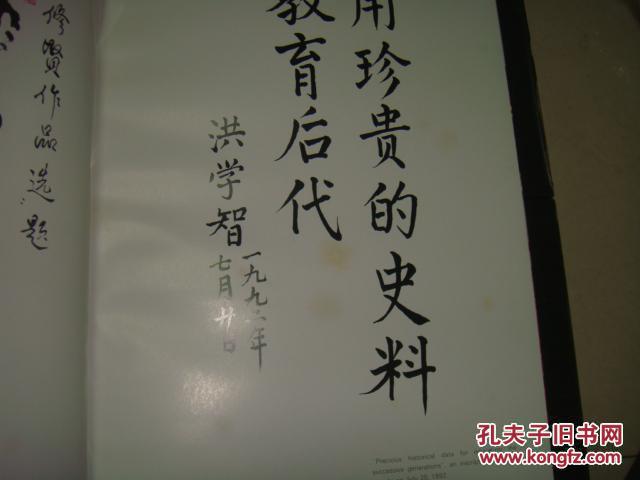 用珍贵的史料
教育后代
洪学智
一九九二年
七月廿日
修贤作品选题
"Precious historical data for
successive generations", an
July 20, 1992
孔夫子旧书网
www.kongfz.com